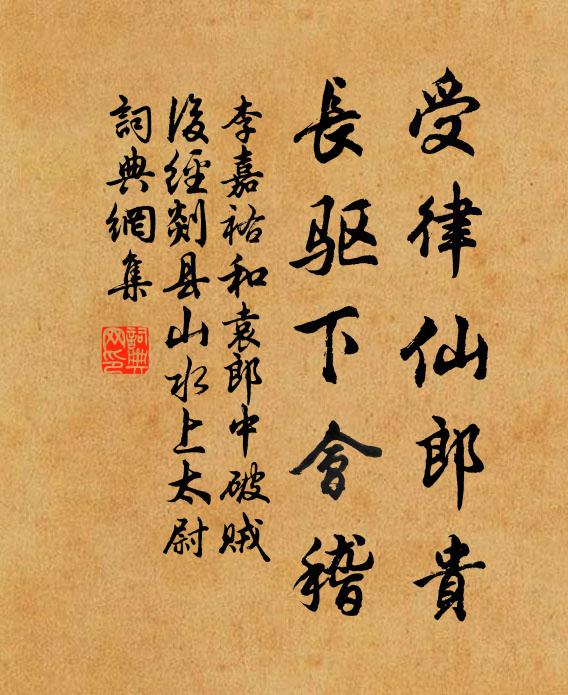 受律仙郎貴
長驱下會稽
李嘉祐和袁郎中破贼
後經剡县山水上太尉
詞典網集
詞典
网印